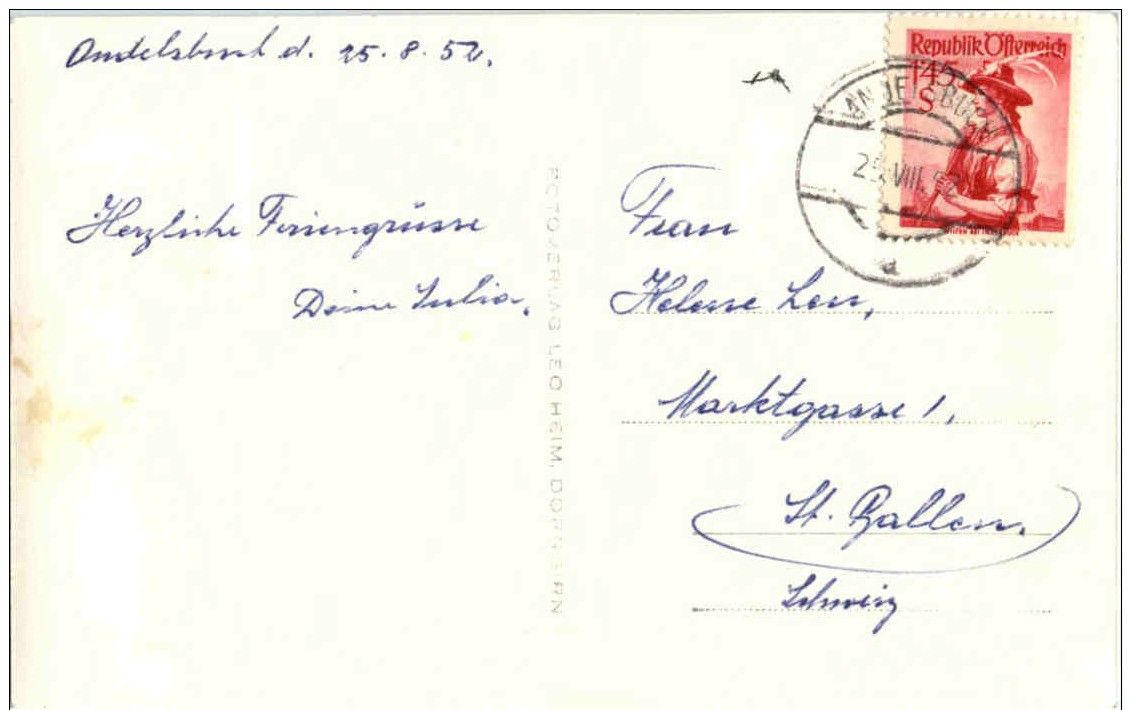 Andelsbuch d. 25.8.52.
Herzliche Feriengrüsse
Deine Julia.
FOTOVERLAG LEO HEIM, DORNBIRN
Republik Österreich
1.45
S
ANDELSBUCH
25.VIII.52
a
Frau
Helene
Marktgasse 1,
St. Gallen.
Schweiz